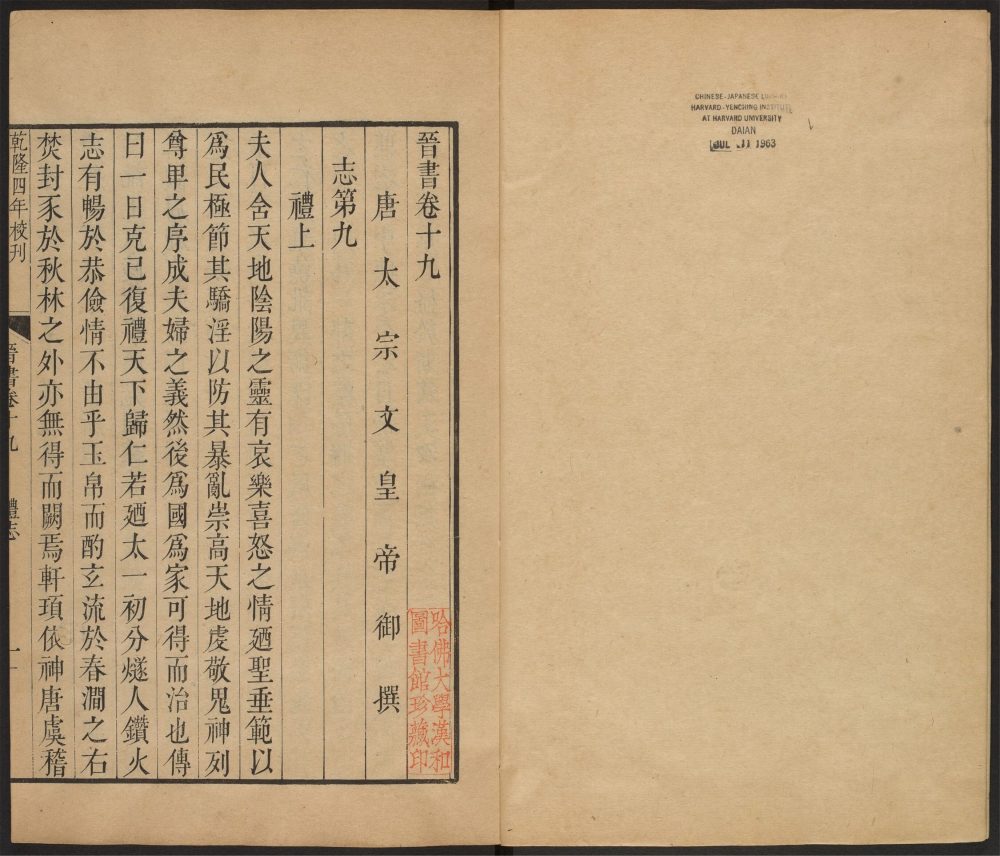 CHINESE-JAPANESE
HARVARD-YENCHING INSTITUTE
AT HARVARD UNIVERSITY
DAIAN
JUL 11 1963
晉書卷十九
唐太宗文皇帝御撰
志第九
禮上
夫人含天地陰陽之靈有哀樂喜怒之情廼聖垂範以
爲民極節其驕淫以防其暴亂崇高天地虔敬鬼神列
尊卑之序成夫婦之義然後爲國爲家可得而治也傳
曰一日克已復禮天下歸仁若廼太一初分燧人鑽火
志有暢於恭儉情不由乎玉帛而酌玄流於春澗之右
焚封豕於秋林之外亦無得而闕焉軒頊依神唐虞稽
乾隆四年校刊
晉書卷十九
禮志
一
哈佛大學漢和
圖書館珍藏印